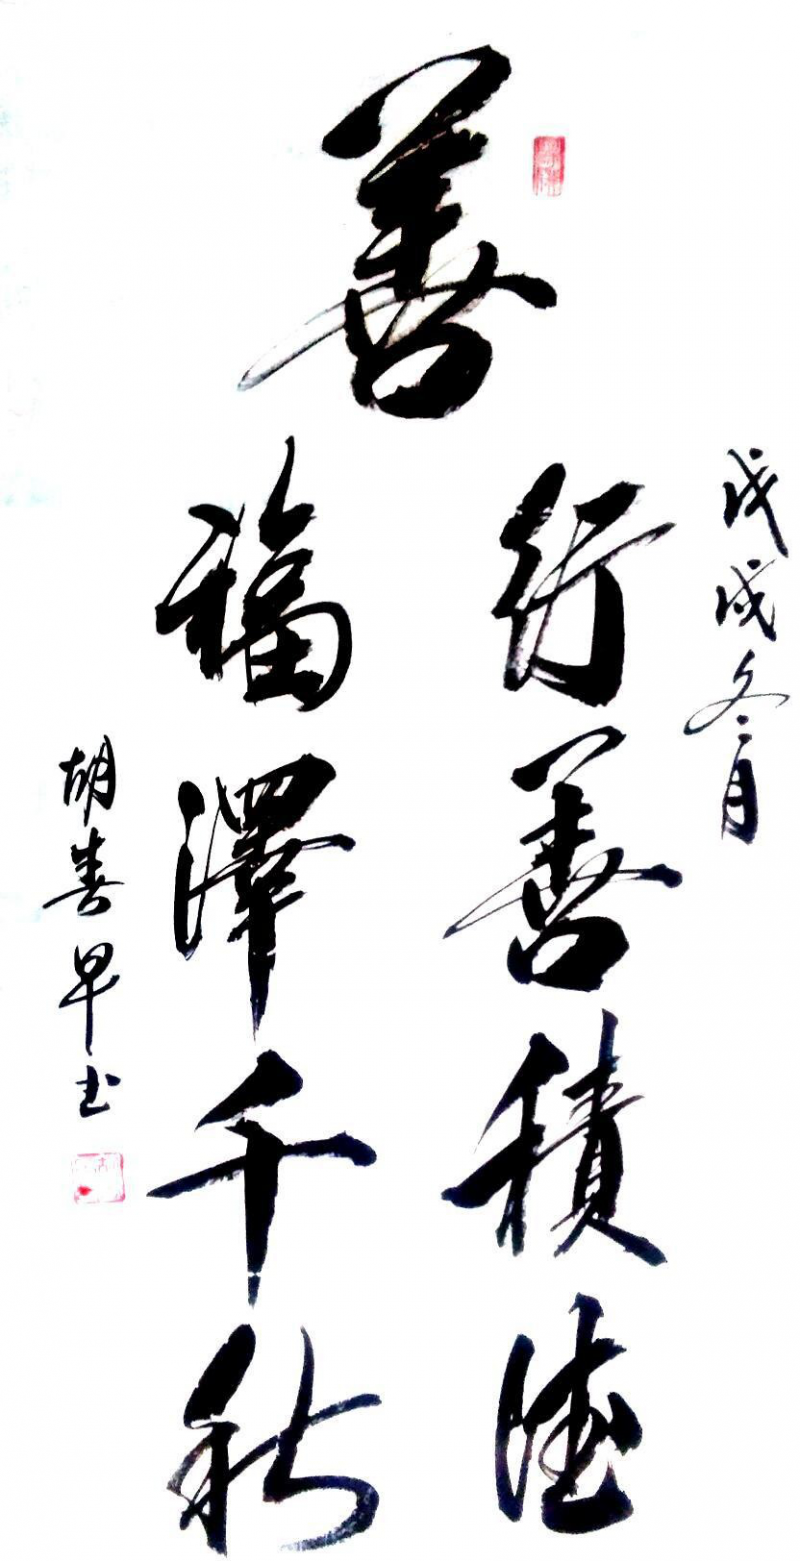 善
戊戌冬月
行善積德
福澤千秋
胡喜早书